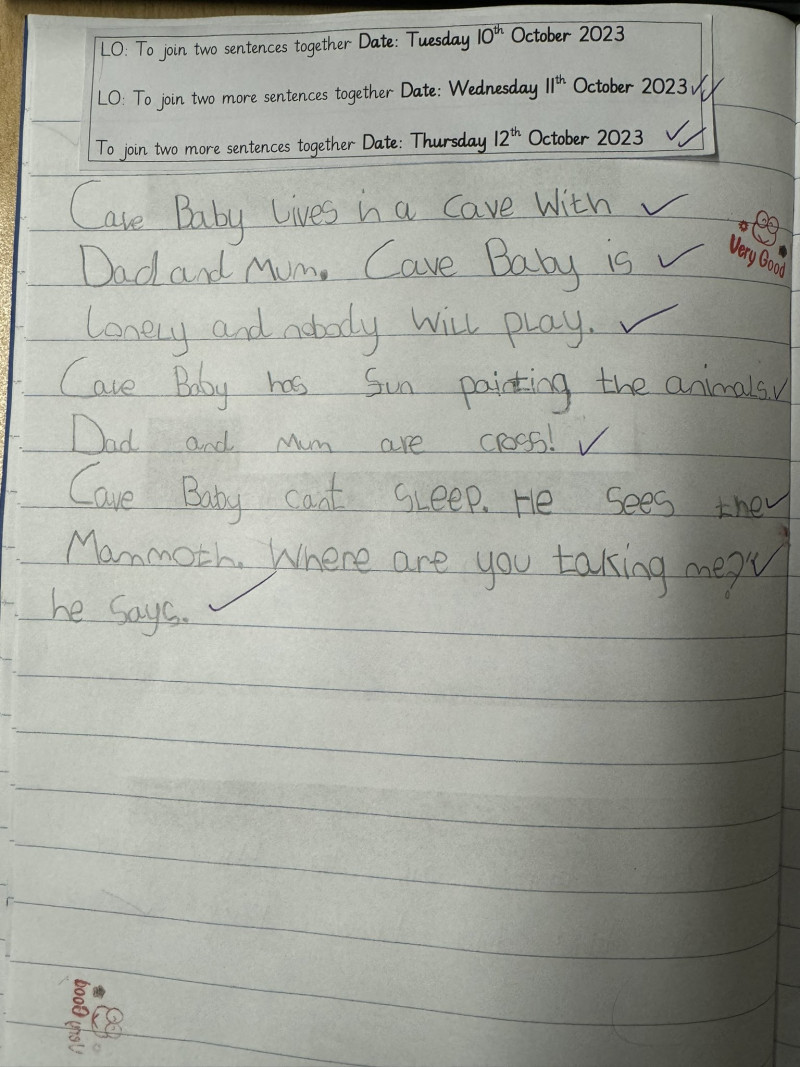 LO: To join two sentences together Date: Tuesday 10th October 2023
LO: To join two more sentences together Date: Wednesday 11th October 2023
To join two more sentences together Date: Thursday 12th October 2023
Cave Baby Lives in a cave with
Very Good
Dad and Mum. Cave Baby is
lonely and nobody will play.
Cave Baby has fun painting the animals.
Dad and Mum are cross!
Cave Baby cant SLEEP. He sees the
Mammoth. Where are you taking me?"
he says.
Very Good